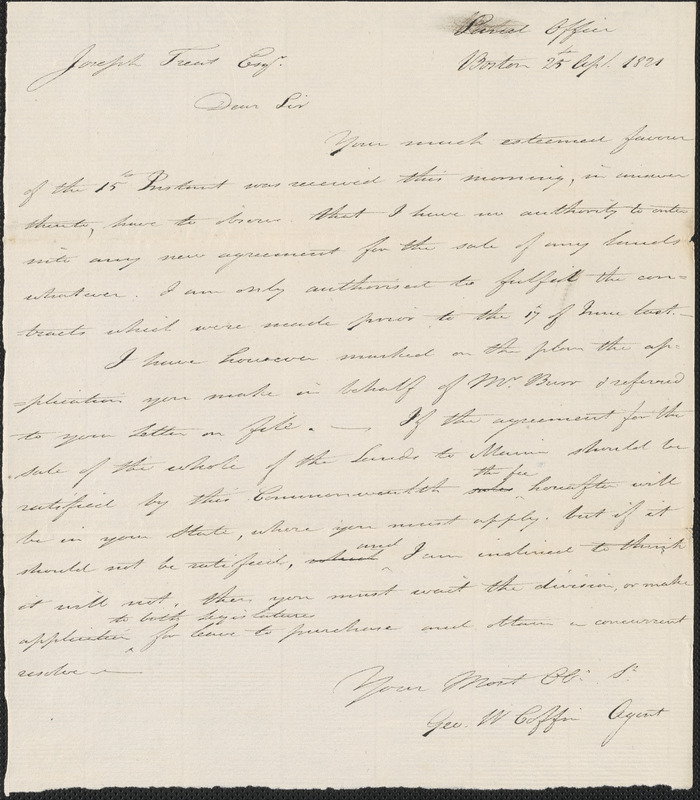 Land Office
Boston 25th Apl. 1821
Joseph Treat Esqr.
Dear Sir
Your much esteemed favour
of the 15th Instant was received this morning, in answer
thereto, have to observe that I have no authority to enter
into any new agreement for the sale of any lands
whatever. I am only authorised to fulfill the con=
tracts which were made prior to the 19 of June last.—
I have however marked on the plan the ap-
=plication you make in behalf of Mr. Burr & referred
to your letter on file. — If the agreement for the
sale of the whole of the Lands to Maine should be
the fee
ratified by this Commonwealth sales hereafter will
be in your State, where you must apply. but if it
and
should not be ratified, which I am inclined to think
it will not, then you must wait the division, or make
to both legislatures
application for leave to purchase and obtain a concurrent
resolve —
Your Most Ob. St.
Geo. W Coffin Agent